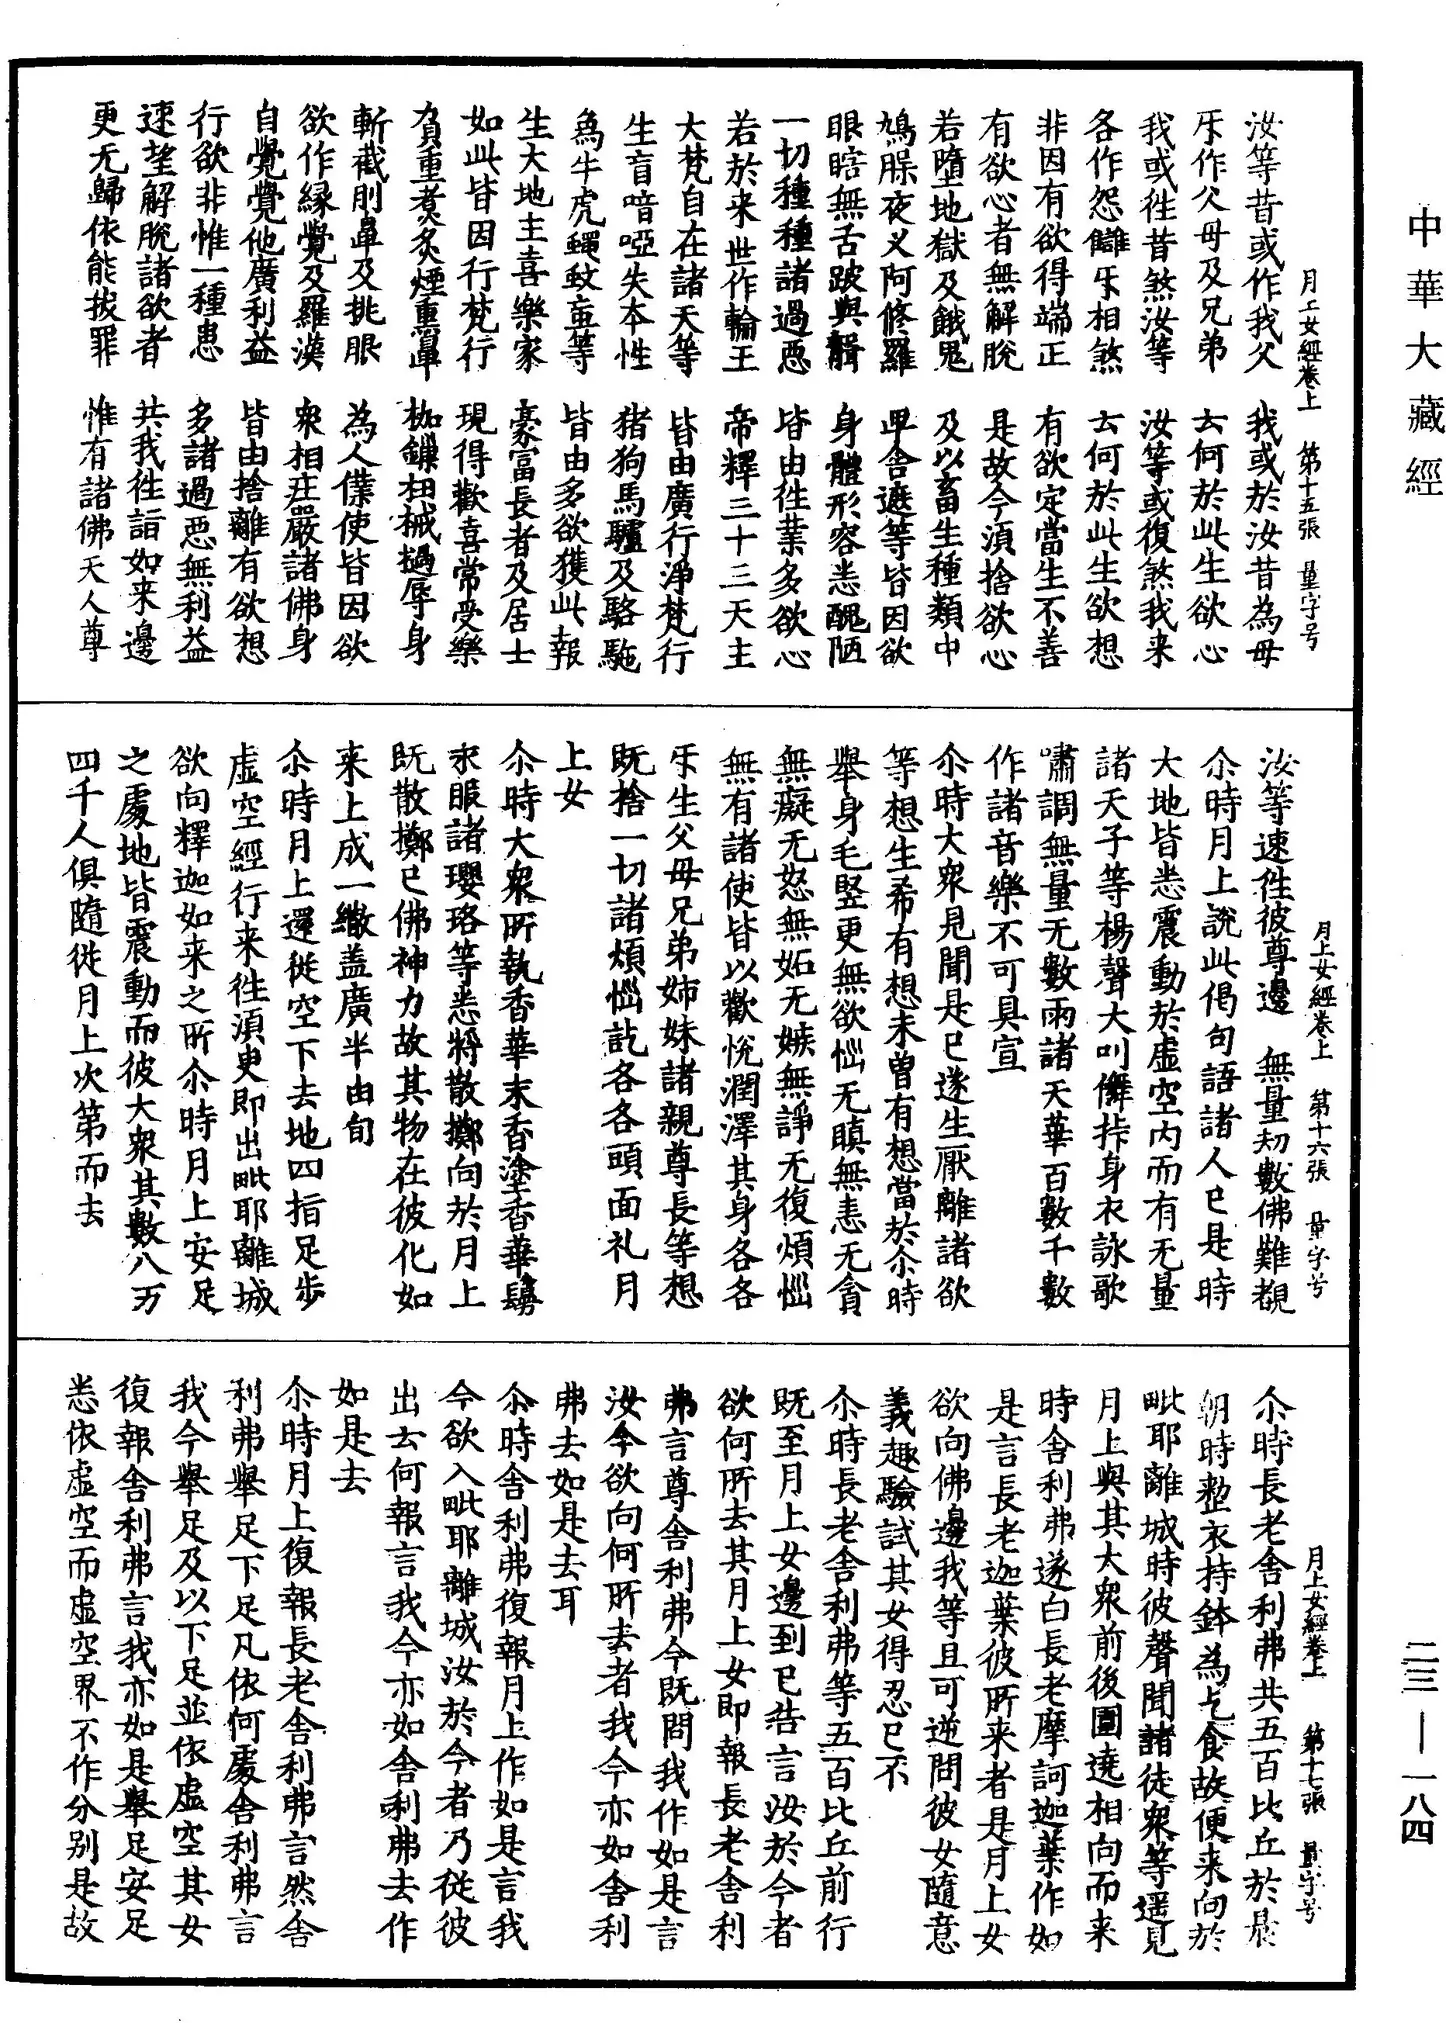 中華大藏經
月上女經卷上 第十五張 量字号
汝等昔或作我父 我或於汝昔為母
𤓰作父母及兄弟 云何於此生欲心
我或往昔煞汝等 汝等或復煞我来
各作怨讎𤓰相煞 云何於此生欲想
非因有欲得端正 有欲定當生不善
有欲心者無解脫 是故今湏捨欲心
若墮地獄及餓鬼 及以畜生種類中
鳩腺夜叉阿修羅 毗舍遮等皆因欲
眼瞎無舌跛與躃 身體形容悉醜陋
一切種種諸過惡 皆由往業多欲心
若於来世作輪王 帝釋三十三天主
大梵自在諸天等 皆由廣行淨梵行
生盲喑啞失本性 猪狗馬驢及駱駞
為牛虎蠅蚊䖟等 皆由多欲獲此報
生大地主喜樂家 豪富長者及居士
如此皆因行梵行 現得歡喜常受樂
負重煑炙煙熏鼻 枷鏁杻械撾辱身
斬截刖鼻及挑眼 為人僕使皆因欲
欲作緣覺及羅漢 衆相莊嚴諸佛身
自覺覺他廣利益 皆由捨離有欲想
行欲非惟一種患 多諸過惡無利益
速望解脫諸欲者 共我往詣如来邊
更无歸依能拔罪 惟有諸佛天人尊
月上女經卷上 第十六張 量字号
汝等速往彼尊邊 無量刼數佛難覩
尒時月上說此偈句語諸人已是時
大地皆悉震動於虛空內而有无量
諸天子等楊聲大叫儛抃身衣詠歌
嘯調無量无數雨諸天華百數千數
作諸音樂不可具宣
尒時大衆見聞是已遂生厭離諸欲
等想生希有想未曾有想當於尒時
舉身毛竪更無欲惱无瞋無恚无貪
無癡无怒無妬无嫉無諍无復煩惱
無有諸使皆以歡悅潤澤其身各各
𤓰生父母兄弟姉妹諸親尊長等想
既捨一切諸煩惱訖各各頭面礼月
上女
尒時大衆所執香華末香塗香華鬘
衣服諸瓔珞等悉將散擲向於月上
既散擲已佛神力故其物在彼化如
来上成一繖盖廣半由旬
尒時月上還従空下去地四指足步
虛空經行来往湏臾即出毗耶離城
欲向釋迦如来之所尒時月上安足
之處地皆震動而彼大衆其數八万
四千人俱隨従月上次第而去
月上女經卷上 第十七張 量字号
尒時長老舍利弗共五百比丘於晨
朝時整衣持鉢為乞食故便来向於
毗耶離城時彼聲聞諸徒衆等遥見
月上與其大衆前後圍遶相向而来
時舍利弗遂白長老摩訶迦葉作如
是言長老迦葉彼所来者是月上女
欲向佛邊我等且可逆問彼女隨意
義趣驗試其女得忍已不
尒時長老舍利弗等五百比丘前行
既至月上女邊到已告言汝於今者
欲何所去其月上女即報長老舍利
弗言尊舍利弗今既問我作如是言
汝今欲向何所去者我今亦如舍利
弗去如是去耳
尒時舍利弗復報月上作如是言我
今欲入毗耶離城汝於今者乃従彼
出云何報言我今亦如舍利弗去作
如是去
尒時月上復報長老舍利弗言然舍
利弗舉足下足凡依何處舍利弗言
我今舉足及以下足並依虛空其女
復報舍利弗言我亦如是舉足安足
悉依虛空而虛空界不作分別是故
二三—一八四